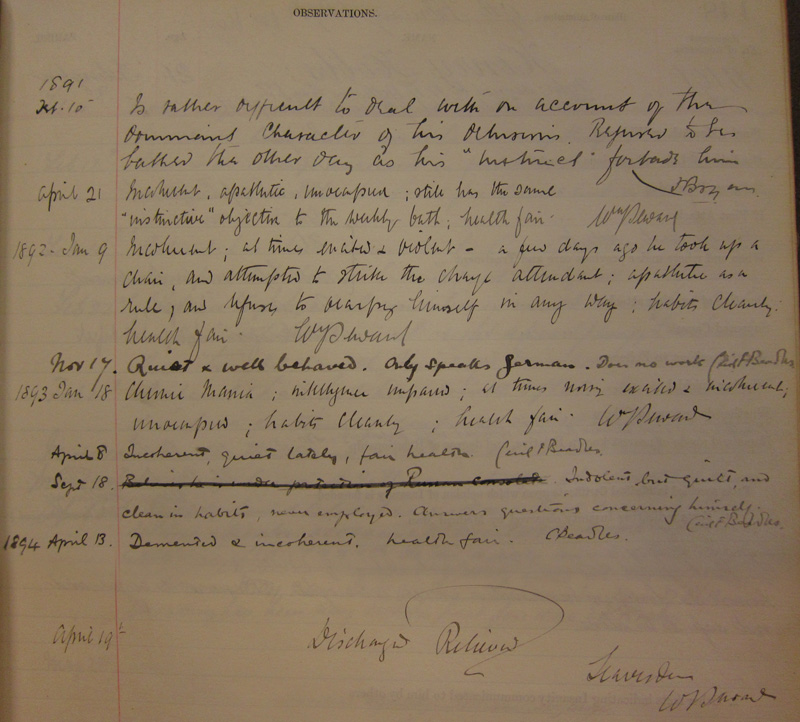 OBSERVATIONS.
1891
Feb. 10 Is rather difficult to deal with on account of the
dominant character of his delusions. Refused to be
bathed the other day as his "instinct" forbade him
April 21 Incoherent, apathetic, unoccupied; still has the same
"instinctive" objection to the weekly bath; health fair. Wm Seward
1892 - Jan 9 Incoherent; at times excited & violent - a few days ago he took up a
chair, and attempted to strike the charge attendant; apathetic as a
rule, and refuses to occupy himself in any way; habits cleanly.
health fair. W J Seward
Nov 17. Quiet & well behaved. Only speaks German. Does no work Cecil F Beadles
1893 Jan 18 Chronic Mania; intelligence impaired; at times noisy excited & incoherent;
unoccupied; habits cleanly; health fair. W J Seward
April 8 Incoherent, quiet lately, fair health. Cecil F Beadles.
Sept 18. Believes he is under protection of Russian consulate. Indolent but quiet, and
clean in habits, never employed. Answers questions concerning himself.
Cecil F Beadles.
1894 April 13. Demented & incoherent. health fair. CBeadles.
April 19th Discharged Relieved
Leavesden
W J Seward